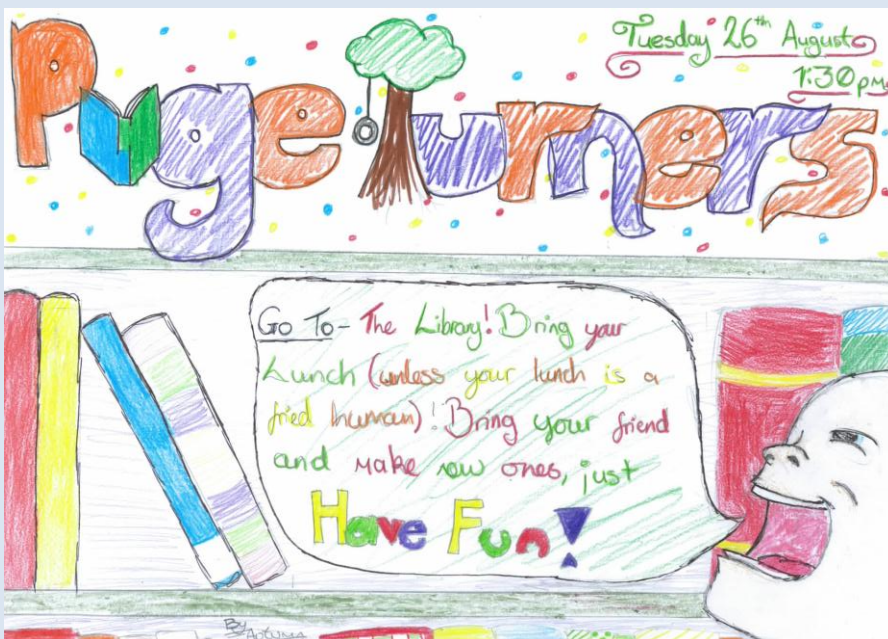 Page Turners
Tuesday 26th August
1:30pm
Go To - The Library! Bring your
Lunch (unless your lunch is a
fried human)! Bring your friend
and make new ones, just
Have Fun!
By